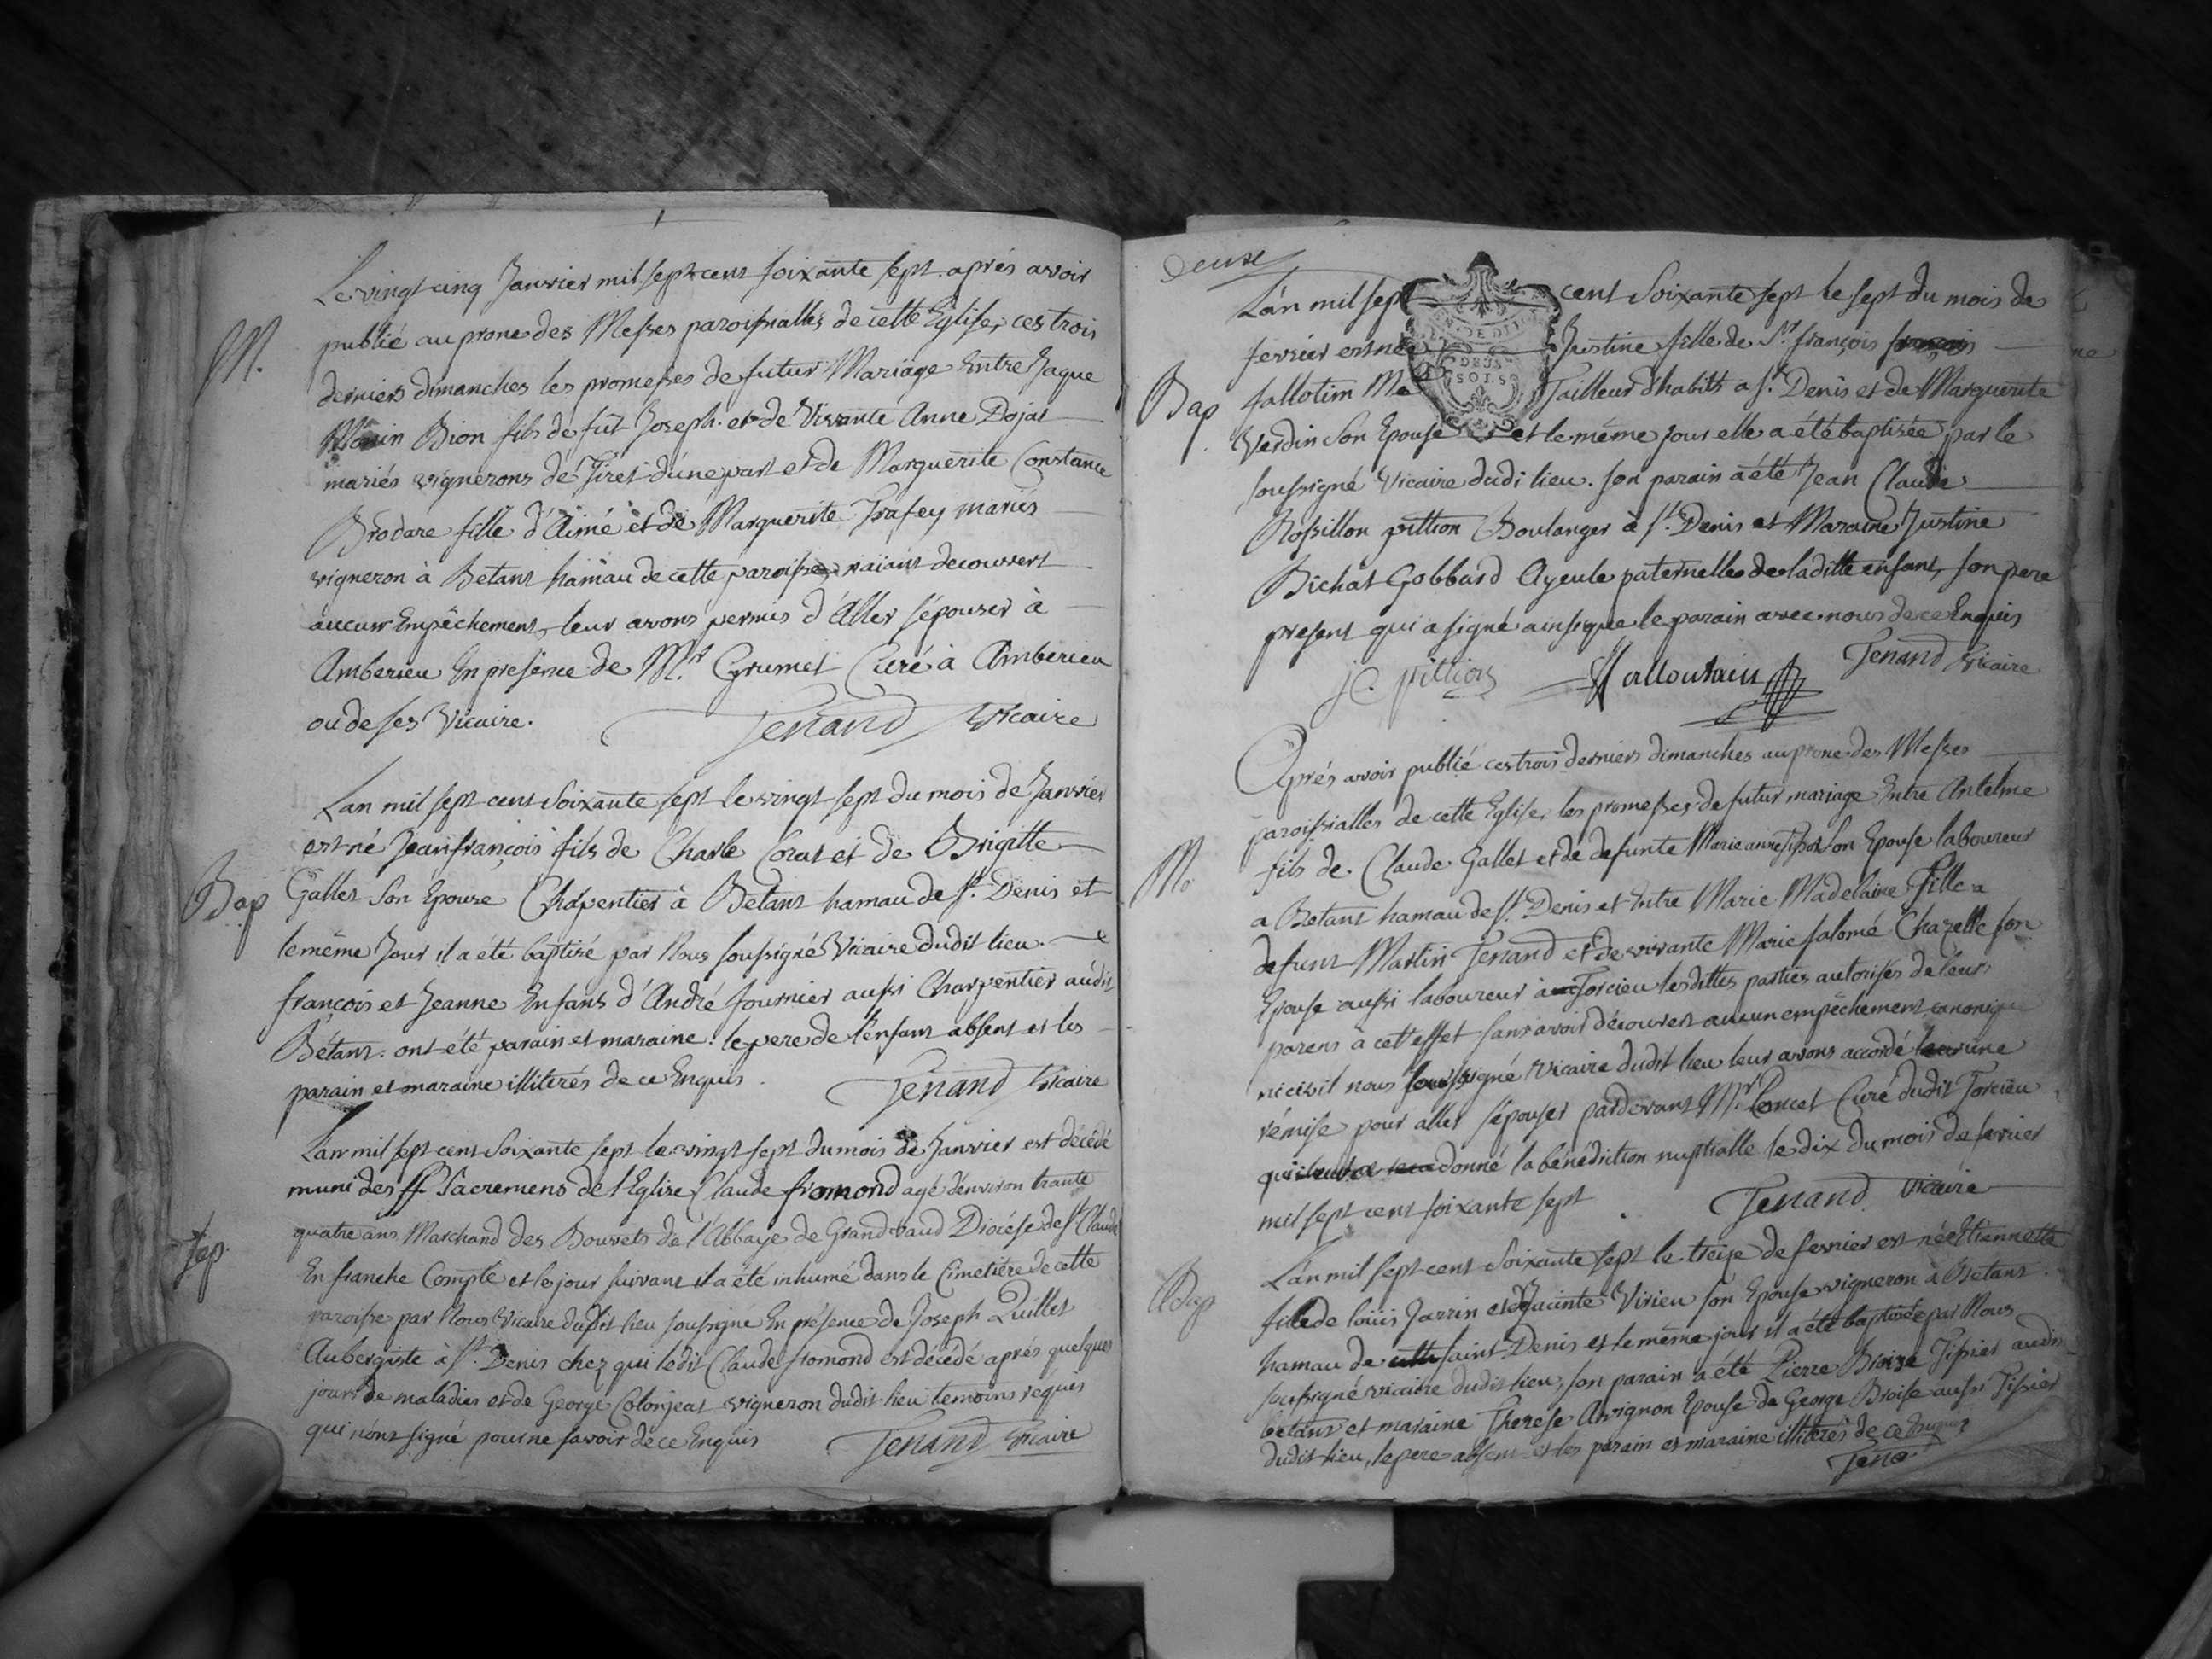 Le vingt cinq Janvier mil sept cent soixante sept. aprés avoir
M.
publié au prone des Messes paroissialles de cette Eglise, ces trois
derniers dimanches les promesses de futur Mariage Entre Jaque
Bion fils de fût Joseph. et de Vivante Anne Dojat
mariés vignerons de Tiret d'une part et de Marguerite Constance
Brodare fille d'Aimé et de Marguerite Trafey mariés
vigneron à Betant hamau de cette paroisse, n'aiant decouvert
aucun Empêchement, leur avons permis d'Aller s'épouser à
Amberieu En presence de Mr. Grumet Curé à Amberieu
ou de ses Vicaire. Tenand Vicaire
L'an mil sept cent Soixante sept le vingt sept du mois de Janvier
est né Jean françois fils de Charle Corat et de Brigitte
Bap
Gallet Son Epouse Charpentier à Betant hamau de St. Denis et
le même Jour il a été baptisé par Nous soussigné Vicaire dudit lieu.
françois et Jeanne Enfants d'André fournier aussi Charpentier audit
Bétant. ont été parain et maraine. le pere de l'enfant absent et les
parain et maraine illiterés de ce Enquis. Tenand Vicaire
L'an mil sept cent Soixante sept le vingt sept du mois de Janvier est décédé
muni des ff. Sacremens de l'Eglise Claude fromond agé d'environ trante
quatre ans Marchand des Bourets de l'Abbaye de Grandvaud Diocése de St. Claude
Sep.
En franche Compté et le jour suivant il a été inhumé dans le Cimetiére de cette
paroisse par Nous Vicaire dudit lieu soussigné En présence de Joseph Quillet
Aubergiste à St. Denis chez qui ledit Claude fromond est décédé aprés quelques
jours de maladies et de George Colonjeat vigneron dudit lieu temoins requis
qui n'ont signé pour ne savoir de ce Enquis Tenand Vicaire
Deuxe
L'an mil sept cent Soixante sept le sept du mois de
fevrier est née Justine fille de Sr. françois
DEUX
SOLS
Bap
fallotim Me Tailleur d'habits a St. Denis et de Marguerite
Verdin Son Epouse et le même jour elle a été baptisée par le
soussigné Vicaire dudi lieu. son parain a été Jean Claude
Rossillon pittion Boulanger à St. Denis et Maraine Justine
Bichat Gobbard Ayeule paternelle de laditte enfant, son pere
present qui a signé ainsi que le parain avec nous de ce Enquis
jC. pittion Tenand Vicaire
Aprés avoir publié ces trois derniers dimanches au prone des Messes
paroissialles de cette Eglise, les promesses de futur mariage Entre Antelme
M.
fils de Claude Gallet et de defunte Marie anne Son Epouse laboureur
a Betant hamau de St. Denis et Entre Marie Madelaine fille a
defunt Martin Tenand et de vivante Marie Salomé Chazelle son
Epouse aussi laboureur à Torcieu lesdittes parties autorisés de leurs
parens à cet effet sans avoir découvert aucun empêchement canonique
ni civil nous soussigné Vicaire dudit lieu leur avons accordé une
rémise pour aller s'épouser pardevant Mr. Poncet Curé dudit Torcieu
donné la bénédiction nuptialle le dix du mois de fevrier
mil sept cent soixante sept. Tenand Vicaire
L'an mil sept cent Soixante sept le treise de fevrier est née Etiennette
Bap
fille de loüis Jarrin et Vivieu son Epouse vigneron à Betant
hamau de saint Denis et le même jour il a été baptisée par Nous
soussigné vicaire dudit lieu, son parain a été Pierre Broise Tissier audit
bétant et maraine Therese Avignon Epouse de George Broise aussi Tissier
dudit lieu, le pere absent et les parain et maraine illiterés de ce Enquis